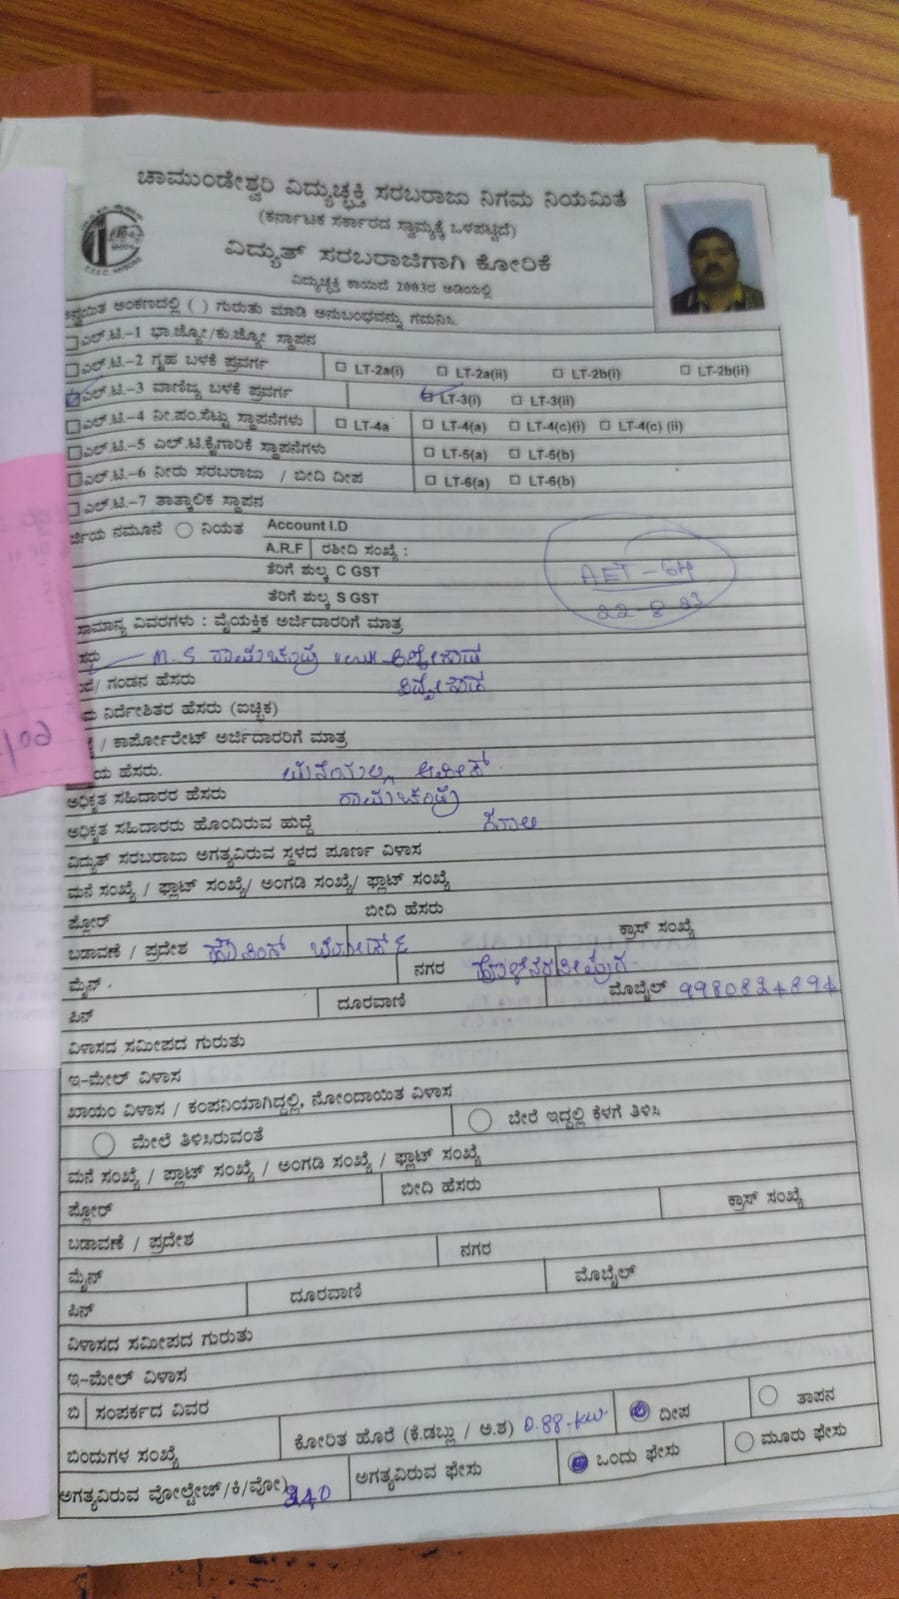 ಚಾಮುಂಡೇಶ್ವರಿ ವಿದ್ಯುಚ್ಛಕ್ತಿ ಸರಬರಾಜು ನಿಗಮ ನಿಯಮಿತ
(ಕರ್ನಾಟಕ ಸರ್ಕಾರದ ಸ್ವಾಮ್ಯಕ್ಕೆ ಒಳಪಟ್ಟಿದೆ)
ವಿದ್ಯುತ್ ಸರಬರಾಜಿಗಾಗಿ ಕೋರಿಕೆ
ವಿದ್ಯುಚ್ಛಕ್ತಿ ಕಾಯಿದೆ 2003ರ ಅಡಿಯಲ್ಲಿ
ಅಂಕಣದಲ್ಲಿ ( ) ಗುರುತು ಮಾಡಿ ಅನುಬಂಧವನ್ನು ಗಮನಿಸಿ.
ಎಲ್.ಟಿ.-1 ಭಾ.ಜ್ಯೋ/ಕು.ಜ್ಯೋ ಸ್ಥಾಪನ
ಎಲ್.ಟಿ.-2 ಗೃಹ ಬಳಕೆ ಪ್ರವರ್ಗ LT-2a(i) LT-2a(ii) LT-2b(i) LT-2b(ii)
ಎಲ್.ಟಿ.-3 ವಾಣಿಜ್ಯ ಬಳಕೆ ಪ್ರವರ್ಗ LT-3(i) LT-3(ii)
ಎಲ್.ಟಿ.-4 ನೀ.ಪಂ.ಸೆಟ್ಟು ಸ್ಥಾಪನೆಗಳು LT-4a LT-4(a) LT-4(c)(i) LT-4(c) (ii)
ಎಲ್.ಟಿ.-5 ಎಲ್.ಟಿ.ಕೈಗಾರಿಕೆ ಸ್ಥಾಪನೆಗಳು LT-5(a) LT-5(b)
ಎಲ್.ಟಿ.-6 ನೀರು ಸರಬರಾಜು / ಬೀದಿ ದೀಪ LT-6(a) LT-6(b)
ಎಲ್.ಟಿ.-7 ತಾತ್ಕಾಲಿಕ ಸ್ಥಾಪನ
ನಮೂನೆ ನಿಯತ Account I.D
A.R.F ರಶೀದಿ ಸಂಖ್ಯೆ :
ತೆರಿಗೆ ಶುಲ್ಕ C GST
AET-64
ತೆರಿಗೆ ಶುಲ್ಕ S GST
22-8-23
ಸಾಮಾನ್ಯ ವಿವರಗಳು : ವೈಯಕ್ತಿಕ ಅರ್ಜಿದಾರರಿಗೆ ಮಾತ್ರ
M.S ರಾಮಚಂದ್ರ
ಗಂಡನ ಹೆಸರು
ನಿರ್ದೇಶಿತರ ಹೆಸರು (ಐಚ್ಛಿಕ)
/ ಕಾರ್ಪೋರೇಟ್ ಅರ್ಜಿದಾರರಿಗೆ ಮಾತ್ರ
ಹೆಸರು.
ಅಧಿಕೃತ ಸಹಿದಾರರ ಹೆಸರು ರಾಮಚಂದ್ರ
ಅಧಿಕೃತ ಸಹಿದಾರರು ಹೊಂದಿರುವ ಹುದ್ದೆ
ವಿದ್ಯುತ್ ಸರಬರಾಜು ಅಗತ್ಯವಿರುವ ಸ್ಥಳದ ಪೂರ್ಣ ವಿಳಾಸ
ಮನೆ ಸಂಖ್ಯೆ / ಫ್ಲಾಟ್ ಸಂಖ್ಯೆ/ ಅಂಗಡಿ ಸಂಖ್ಯೆ/ ಫ್ಲಾಟ್ ಸಂಖ್ಯೆ
ಫ್ಲೋರ್ ಬೀದಿ ಹೆಸರು
ಬಡಾವಣೆ / ಪ್ರದೇಶ ಹೌಸಿಂಗ್ ಬೋರ್ಡ್ ಕ್ರಾಸ್ ಸಂಖ್ಯೆ
ಮೈನ್ ನಗರ ಹೊಳೆನರಸೀಪುರ
ಪಿನ್ ದೂರವಾಣಿ ಮೊಬೈಲ್ 9980824894
ವಿಳಾಸದ ಸಮೀಪದ ಗುರುತು
ಇ-ಮೇಲ್ ವಿಳಾಸ
ಖಾಯಂ ವಿಳಾಸ / ಕಂಪನಿಯಾಗಿದ್ದಲ್ಲಿ, ನೋಂದಾಯಿತ ವಿಳಾಸ
ಮೇಲೆ ತಿಳಿಸಿರುವಂತೆ ಬೇರೆ ಇದ್ದಲ್ಲಿ ಕೆಳಗೆ ತಿಳಿಸಿ
ಮನೆ ಸಂಖ್ಯೆ / ಪ್ಲಾಟ್ ಸಂಖ್ಯೆ / ಅಂಗಡಿ ಸಂಖ್ಯೆ / ಫ್ಲಾಟ್ ಸಂಖ್ಯೆ
ಫ್ಲೋರ್ ಬೀದಿ ಹೆಸರು
ಬಡಾವಣೆ / ಪ್ರದೇಶ ಕ್ರಾಸ್ ಸಂಖ್ಯೆ
ಮೈನ್ ನಗರ
ಪಿನ್ ದೂರವಾಣಿ ಮೊಬೈಲ್
ವಿಳಾಸದ ಸಮೀಪದ ಗುರುತು
ಇ-ಮೇಲ್ ವಿಳಾಸ
ಬಿ ಸಂಪರ್ಕದ ವಿವರ
ಬಿಂದುಗಳ ಸಂಖ್ಯೆ ಕೋರಿತ ಹೊರೆ (ಕಿ.ಡಬ್ಲು / ಅ.ಶ) 0.88-kw ದೀಪ ತಾಪನ
ಅಗತ್ಯವಿರುವ ವೋಲ್ಟೇಜ್/ಕಿ/ವೋ) 240 ಅಗತ್ಯವಿರುವ ಫೇಸು ಒಂದು ಫೇಸು ಮೂರು ಫೇಸು